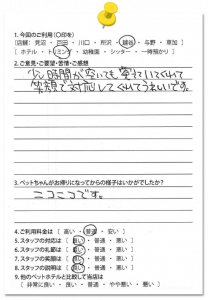 1.今回のご利用(○印を)
[店舗: 見沼 ・ 戸田 ・ 川口 ・ 所沢 ・ 越谷 ・ 与野 ・ 草加 ]
[ ホテル ・ トリミング ・ 幼稚園 ・ シッター ・ 一時預かり ]
2.ご意見・ご要望・苦情・ご感想
少し時間が空いても覚えていてくれて
笑顔で対応してくれてうれしいです。
3.ペットちゃんがお帰りになってからの様子はいかがでしたか?
ニコニコです。
4.ご利用料金は [ 高い ・ 普通 ・ 安い ]
5.スタッフの対応は [ 良い ・ 普通 ・ 悪い ]
6.スタッフの礼節は [ 良い ・ 普通 ・ 悪い ]
7.スタッフの笑顔は [ 良い ・ 普通 ・ 悪い ]
8.スタッフの説明は [ 良い ・ 普通 ・ 悪い ]
9.他のペットホテルと比較して当店は
[ 非常に良い ・ 良い ・ 普通 ・ やや悪い ・ 悪い ]